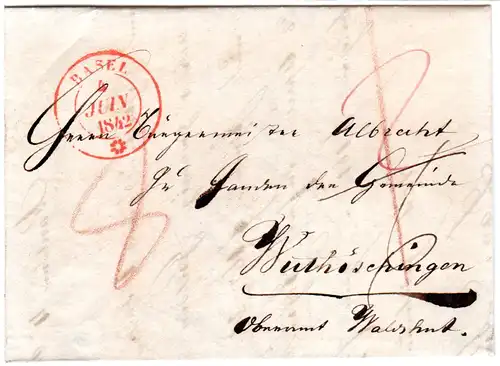 BASEL
4
JUIN
1842
Herrn Bürgermeister Albrecht
Zu Handen der Gemeinde
Wuthöschingen
Oberamt Waldshut.